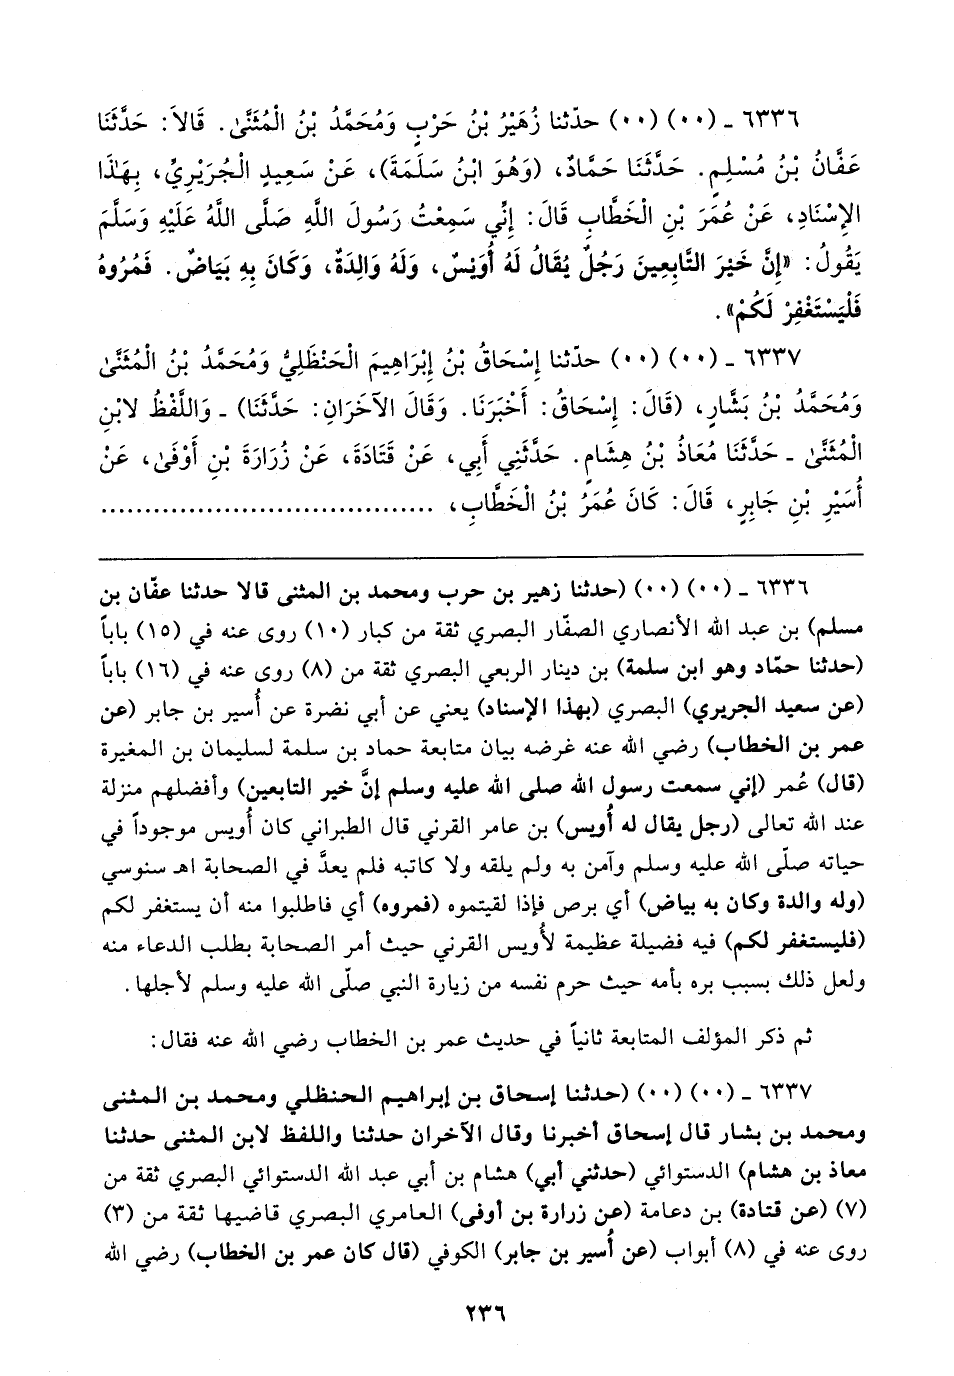 ٦٣٣٦ ـ (٠٠) (٠٠) حدّثنا زُهَيْرُ بْنُ حَرْبٍ وَمُحَمَّدُ بْنُ الْمُثَنَّىٰ. قَالاَ: حَدَّثَنَا
عَفَّانُ بْنُ مُسْلِمٍ. حَدَّثَنَا حَمَّادٌ، (وَهُوَ ابْنُ سَلَمَةَ)، عَنْ سَعِيدٍ الْجُرَيْرِيِّ، بِهَذَا
الإِسْنَادِ، عَنْ عُمَرَ بْنِ الْخَطَّابِ قَالَ: إِنِّي سَمِعْتُ رَسُولَ اللَّهِ صَلَّى اللَّهُ عَلَيْهِ وَسَلَّمَ
يَقُولُ: «إِنَّ خَيْرَ التَّابِعِينَ رَجُلٌ يُقَالُ لَهُ أُوَيْسٌ، وَلَهُ وَالِدَةٌ، وَكَانَ بِهِ بَيَاضٌ. فَمُرُوهُ
فَلْيَسْتَغْفِرْ لَكُمْ».
٦٣٣٧ ـ (٠٠) (٠٠) حدّثنا إِسْحَاقُ بْنُ إِبْرَاهِيمَ الْحَنْظَلِيُّ وَمُحَمَّدُ بْنُ الْمُثَنَّىٰ
وَمُحَمَّدُ بْنُ بَشَّارٍ، (قَالَ: إِسْحَاقُ: أَخْبَرَنَا. وَقَالَ الآخَرَانِ: حَدَّثَنَا) ـ وَاللَّفْظُ لابْنِ
الْمُثَنَّىٰ ـ حَدَّثَنَا مُعَاذُ بْنُ هِشَامٍ. حَدَّثَنِي أَبِي، عَنْ قَتَادَةَ، عَنْ زُرَارَةَ بْنِ أَوْفَىٰ، عَنْ
أُسَيْرِ بْنِ جَابِرٍ، قَالَ: كَانَ عُمَرُ بْنُ الْخَطَّابِ، ....................................
٦٣٣٦ ـ (٠٠) (٠٠) (حدثنا زهير بن حرب ومحمد بن المثنى قالا حدثنا عفّان بن
مسلم) بن عبد الله الأنصاري الصفّار البصري ثقة من كبار (١٠) روى عنه في (١٥) باباً
(حدثنا حمّاد وهو ابن سلمة) بن دينار الربعي البصري ثقة من (٨) روى عنه في (١٦) باباً
(عن سعيد الجريري) البصري (بهذا الإسناد) يعني عن أبي نضرة عن أُسير بن جابر (عن
عمر بن الخطاب) رضي الله عنه غرضه بيان متابعة حماد بن سلمة لسليمان بن المغيرة
(قال) عُمر (إني سمعت رسول الله صلى الله عليه وسلم إنَّ خير التابعين) وأفضلهم منزلة
عند الله تعالى (رجل يقال له أُويس) بن عامر القرني قال الطبراني كان أُويس موجوداً في
حياته صلّى الله عليه وسلم وآمن به ولم يلقه ولا كاتبه فلم يعدَّ في الصحابة اهـ سنوسي
(وله والدة وكان به بياض) أي برص فإذا لقيتموه (فمروه) أي فاطلبوا منه أن يستغفر لكم
(فليستغفر لكم) فيه فضيلة عظيمة لأُويس القرني حيث أمر الصحابة بطلب الدعاء منه
ولعل ذلك بسبب بره بأمه حيث حرم نفسه من زيارة النبي صلّى الله عليه وسلم لأجلها.
ثم ذكر المؤلف المتابعة ثانياً في حديث عمر بن الخطاب رضي الله عنه فقال:
٦٣٣٧ ـ (٠٠) (٠٠) (حدثنا إسحاق بن إبراهيم الحنظلي ومحمد بن المثنى
ومحمد بن بشار قال إسحاق أخبرنا وقال الآخران حدثنا واللفظ لابن المثنى حدثنا
معاذ بن هشام) الدستوائي (حدثني أبي) هشام بن أبي عبد الله الدستوائي البصري ثقة من
(٧) (عن قتادة) بن دعامة (عن زرارة بن أوفى) العامري البصري قاضيها ثقة من (٣)
روى عنه في (٨) أبواب (عن أُسير بن جابر) الكوفي (قال كان عمر بن الخطاب) رضي الله
٢٣٦